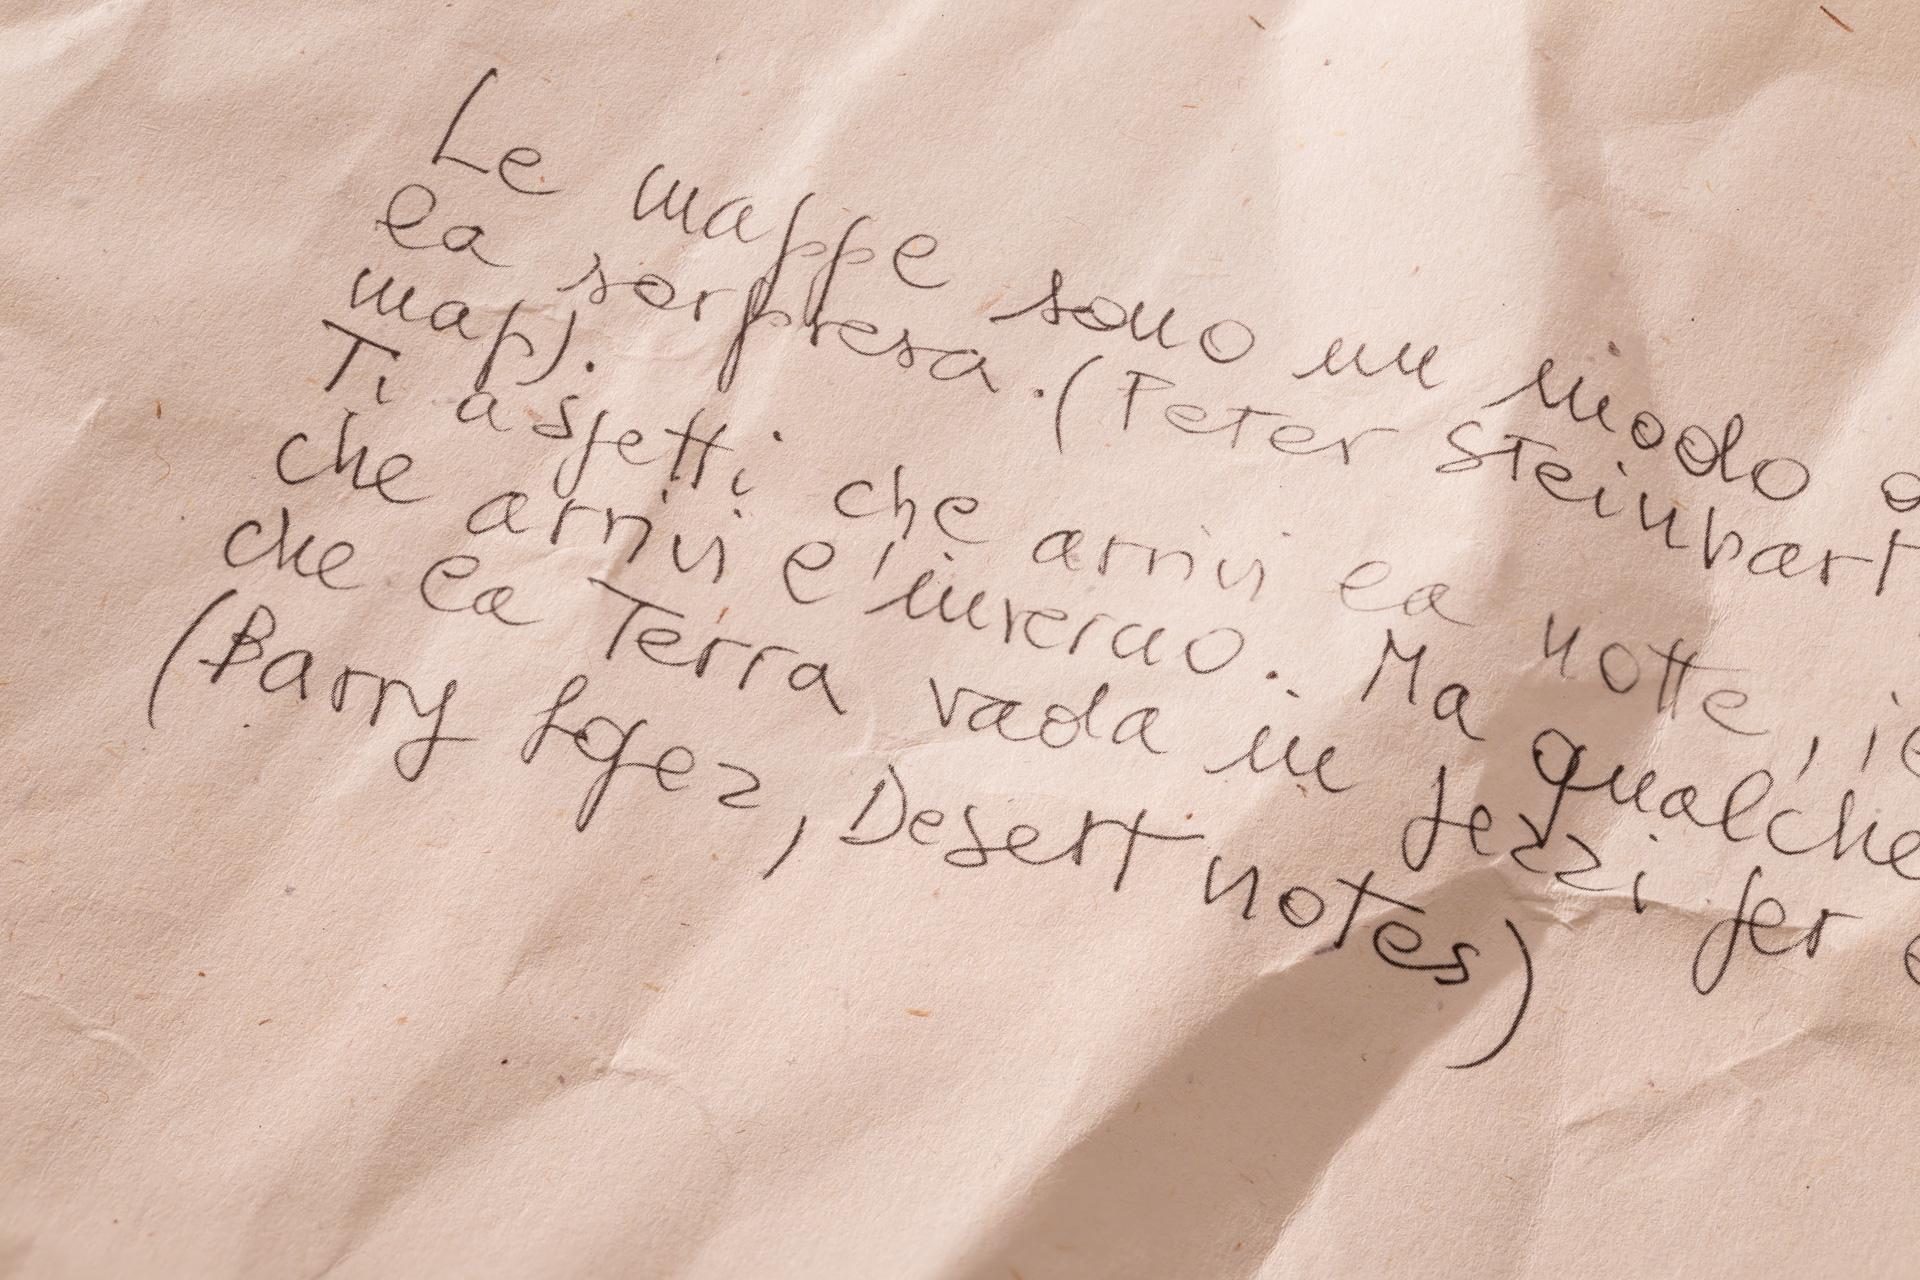 Le mappe sono un modo
la sorpresa. (Peter Steinhart
map).
Ti aspetti che arrivi la notte,
che arrivi l'inverno. Ma qualche
che la Terra vada in pezzi per
(Barry Lopez, Desert notes)